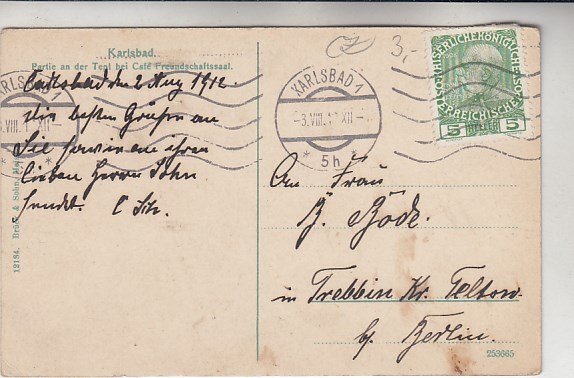 Karlsbad.
Partie an der Tepl bei Café Freundschaftssaal.
Carlsbad den 2 Aug 1912
Die besten Grüße an
Sie sowie an ihren
lieben Herrn Sohn
sendet. C Sch.
12184. Brück & Sohn, Mei
3,-
KARLSBAD 1
-3.VIII.12 XII-
* 5h *
KARLSB
VIII.
KAISERLICHE KÖNIGLICHE
ÖSTERREICHISCHE
5 HELLER 5
An Frau
B. Böde.
in Trebbin Kr. Teltow
b/ Berlin.
253665